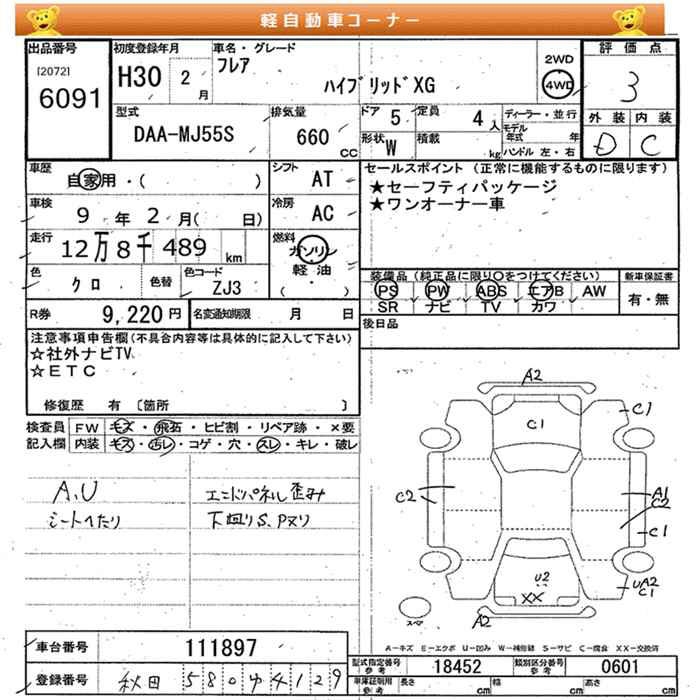 軽自動車コーナー
出品番号
[2072]
6091
初度登録年月
H30 2 月
車名・グレード
フレア
ハイブリッドXG
2WD
4WD
評価点
3
外装 内装
D C
型式
DAA-MJ55S
排気量
660 cc
ドア 5
定員 4 人
形状 W
積載 kg
ディーラー・並行
モデル年式 年
ハンドル 左・右
車歴
自家用・( )
シフト
AT
車検
9 年 2 月( 日)
冷房
AC
走行
12万8千489 km
燃料
ガソリン
軽油
( )
色
クロ
色替
色コード
ZJ3
R券 9,220円
名変通知期限 月 日
セールスポイント (正常に機能するものに限ります)
★セーフティパッケージ
★ワンオーナー車
装備品 (純正品に限り○をつけてください)
PS PW ABS エアB AW
SR ナビ TV カワ
新車保証書
有・無
後日品
注意事項申告欄(不具合内容等は具体的に記入して下さい)
☆社外ナビTV
☆ETC
修復歴 有 〔箇所 〕
検査員記入欄
FW キズ・飛石・ヒビ割・リペア跡・×要
内装 キズ・汚レ・コゲ・穴・スレ・キレ・破レ
A、U
シートヘたり
エンドパネル歪み
下回りS、Pヌリ
A2
C1
C1
C2
A1
C2
C1
U2
XX
UA2
C1
A2
スペア
A-キズ E-エクボ U-凹み W-補修跡 S-サビ C-腐食 XX-交換済
車台番号 111897
登録番号 秋田 580 ゆ 4129
型式指定番号 参考 18452
類別区分番号 参考 0601
車庫証明用 参考 長さ cm 幅 cm 高さ cm